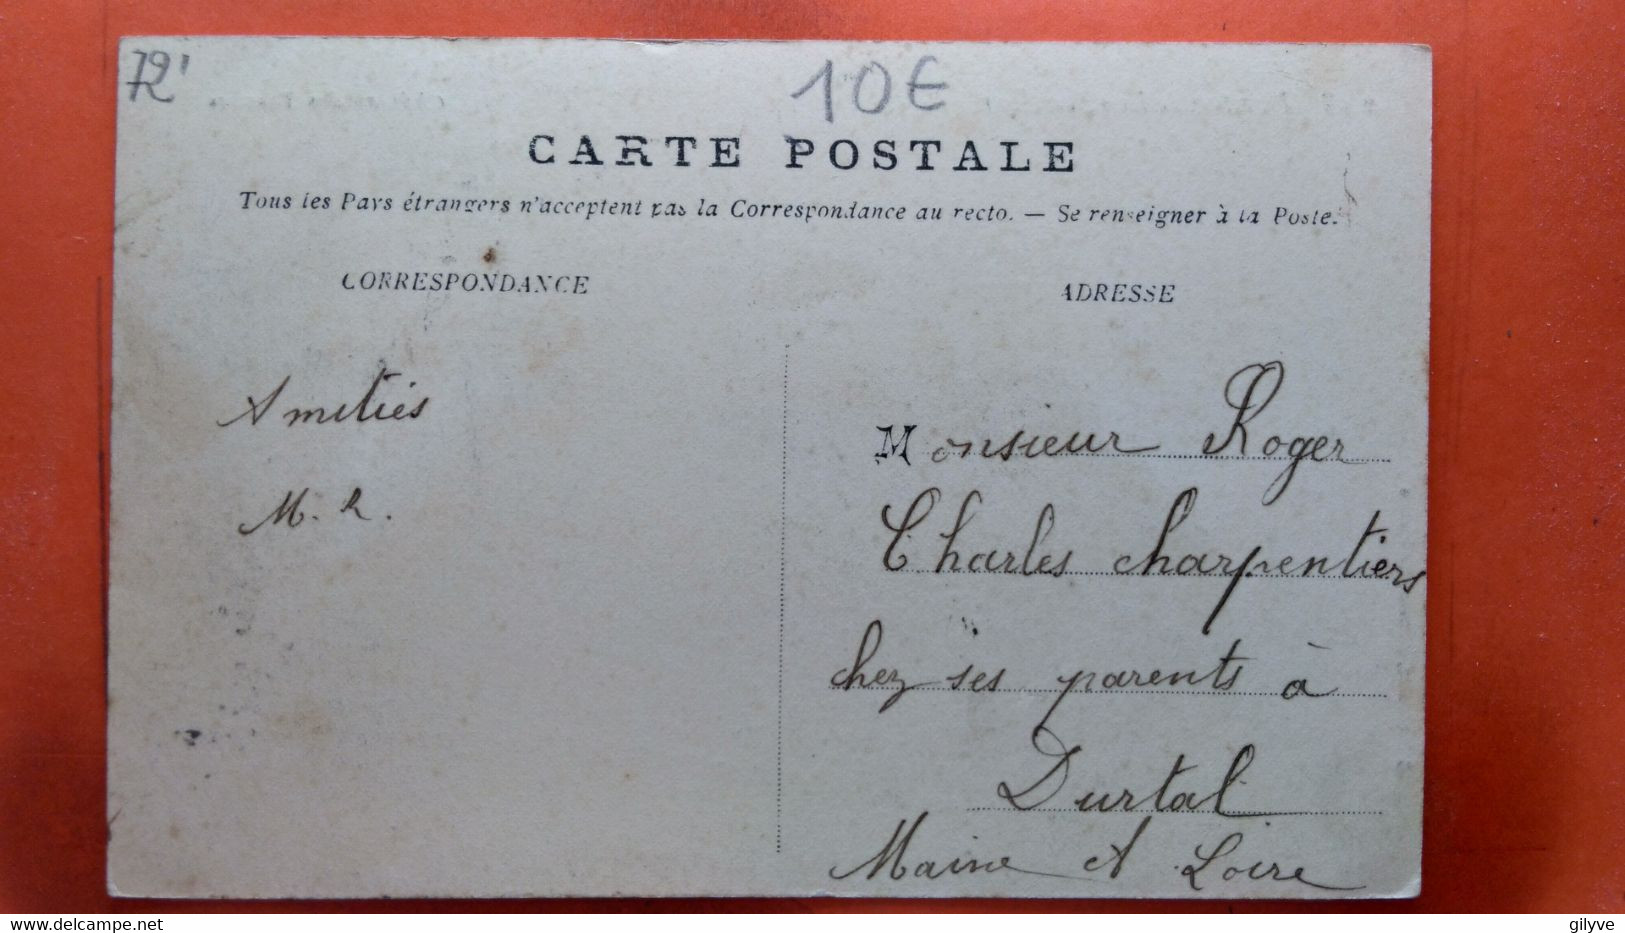 72'
10€
CARTE POSTALE
Tous les Pays étrangers n'acceptent pas la Correspondance au recto. — Se renseigner à la Poste.
CORRESPONDANCE
ADRESSE
Amitiés
M. R.
Monsieur Roger
Charles charpentiers
chez ses parents à
Durtal
Maine et Loire
gilyve